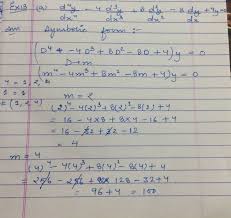 Ex13 (a) d⁴y/dx⁴ - 4 d³y/dx³ + 8 d²y/dx² - 8 dy/dx + 4y = 0
Symbolic form :-
(D⁴ - 4D³ + 8D² - 8D + 4)y = 0
D→m
(m⁴ - 4m³ + 8m² - 8m + 4)y = 0
m = 2
(2)⁴ - 4(2)³ + 8(2)² - 8(2) + 4
= 16 - 4×8 + 8×4 - 16 + 4
= 16 - 32 + 32 - 12
= 4
m = 4
(4)⁴ - 4(4)³ + 8(4)² - 8(4) + 4
= 256 - 256 + 128 - 32 + 4
= 96 + 4 = 100